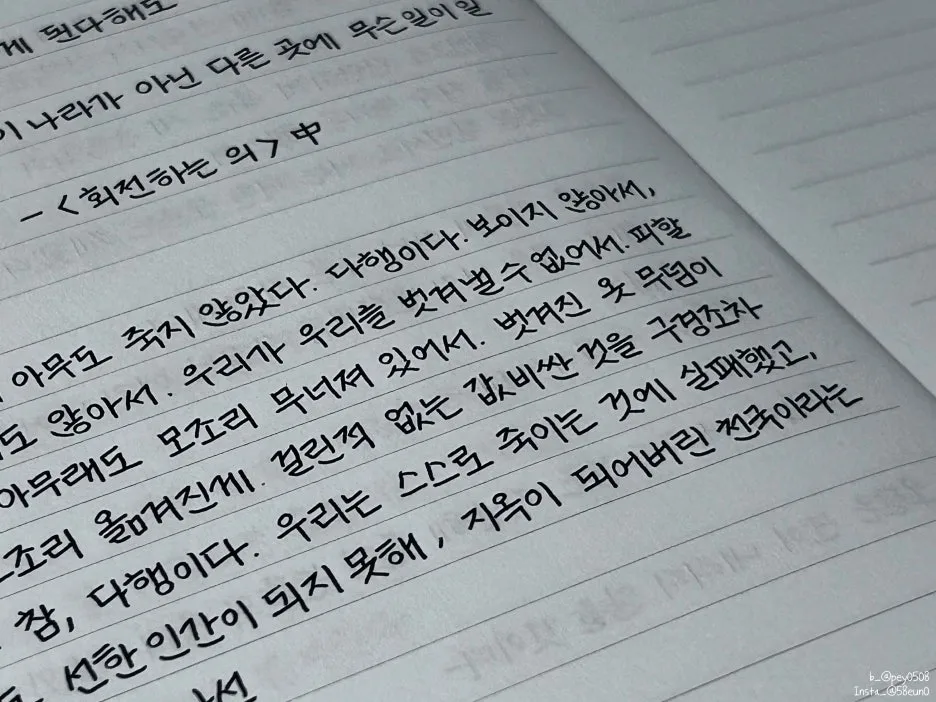 게 된다해도
이 나라가 아닌 다른 곳에 무슨일이일
- <회전하는 의> 中
아무도 죽지 않았다. 다행이다. 보이지 않아서,
도 않아서. 우리가 우리를 벗겨낼 수 없어서. 피할
아무래도 모조리 무너져 있어서. 벗겨진 옷 무덤이
조리 옮겨진게. 걸린적 없는 값비싼 것을 구경조차
참, 다행이다. 우리는 스스로 죽이는 것에 실패했고,
선한 인간이 되지 못해, 지옥이 되어버린 천국이라는
b_@pey0508
Insta_@58eun0